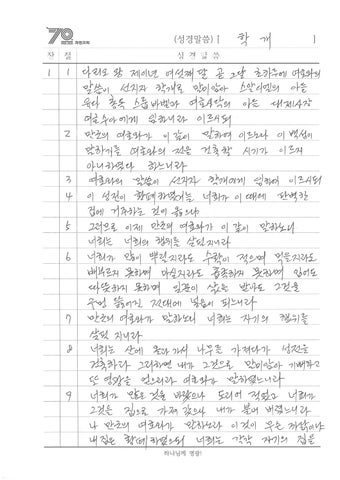 70
(성경말씀) [ 학개 ]
장 절 성경말씀
1 1 다리오 왕 제이년 여섯째 달 곧 그달 초하루에 여호와의
말씀이 선지자 학개로 말미암아 스알디엘의 아들
유다 총독 스룹바벨과 여호사닥의 아들 대제사장
여호수아에게 임하니라 이르시되
2 만군의 여호와가 이같이 말하여 이르노라 이 백성이
말하기를 여호와의 전을 건축할 시기가 이르지
아니하였다 하느니라
3 여호와의 말씀이 선지자 학개에게 임하여 이르시되
4 이 성전이 황폐하였거늘 너희가 이 때에 판벽한
집에 거주하는 것이 옳으냐
5 그러므로 이제 만군의 여호와가 이같이 말하노니
너희는 너희의 행위를 살필지니라
6 너희가 많이 뿌릴지라도 수확이 적으며 먹을지라도
배부르지 못하며 마실지라도 흡족하지 못하며 입어도
따뜻하지 못하며 일꾼이 삯을 받아도 그것을
구멍 뚫어진 전대에 넣음이 되느니라
7 만군의 여호와가 말하노니 너희는 자기의 행위를
살필지니라
8 너희는 산에 올라가서 나무를 가져다가 성전을
건축하라 그리하면 내가 그것으로 말미암아 기뻐하고
또 영광을 얻으리라 여호와가 말하였느니라
9 너희가 많은 것을 바랐으나 도리어 적었고 너희가
그것을 집으로 가져갔으나 내가 불어 버렸느니라
나 만군의 여호와가 말하노라 이것이 무슨 까닭이냐
내 집은 황폐하였으되 너희는 각각 자기의 집을
하나님께 영광!